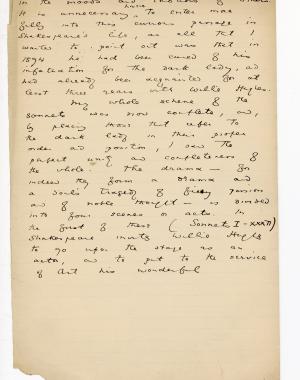 in the moods and
It is unnecessary to enter more
fully into this curious passage in
Shakespeare's life, as all that I
wanted to point out was that in
1594 he had been cured of his
infatuation for the dark lady, and
had already been acquainted for at
least three years with Willie Hughes.
My whole scheme of the
sonnets was now complete, and,
by placing those that refer to
the dark lady in their proper
order and position, I saw the
perfect unity and completeness of
the whole. The drama — for
indeed they form a drama and
a soul's tragedy of fiery passion
and of noble thought — is divided
into four scenes or acts. In
the first of these (Sonnets I - XXXII)
Shakespeare invites Willie Hughes
to go upon the stage as an
actor, and to put to the service
of Art his wonderful